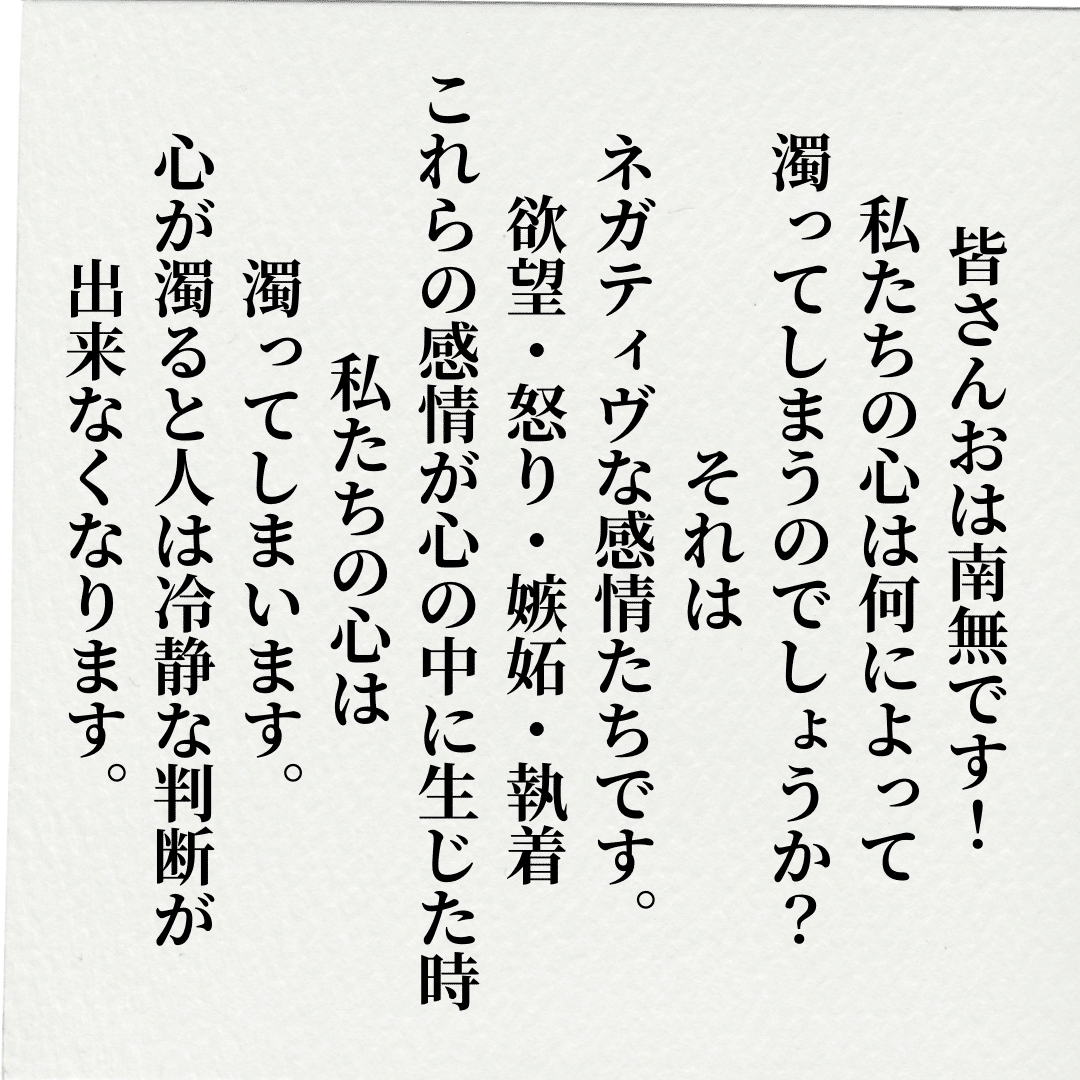 皆さんおは南無です!
私たちの心は何によって
濁ってしまうのでしょうか?
それは
ネガティヴな感情たちです。
欲望・怒り・嫉妬・執着
これらの感情が心の中に生じた時
私たちの心は
濁ってしまいます。
心が濁ると人は冷静な判断が
出来なくなります。